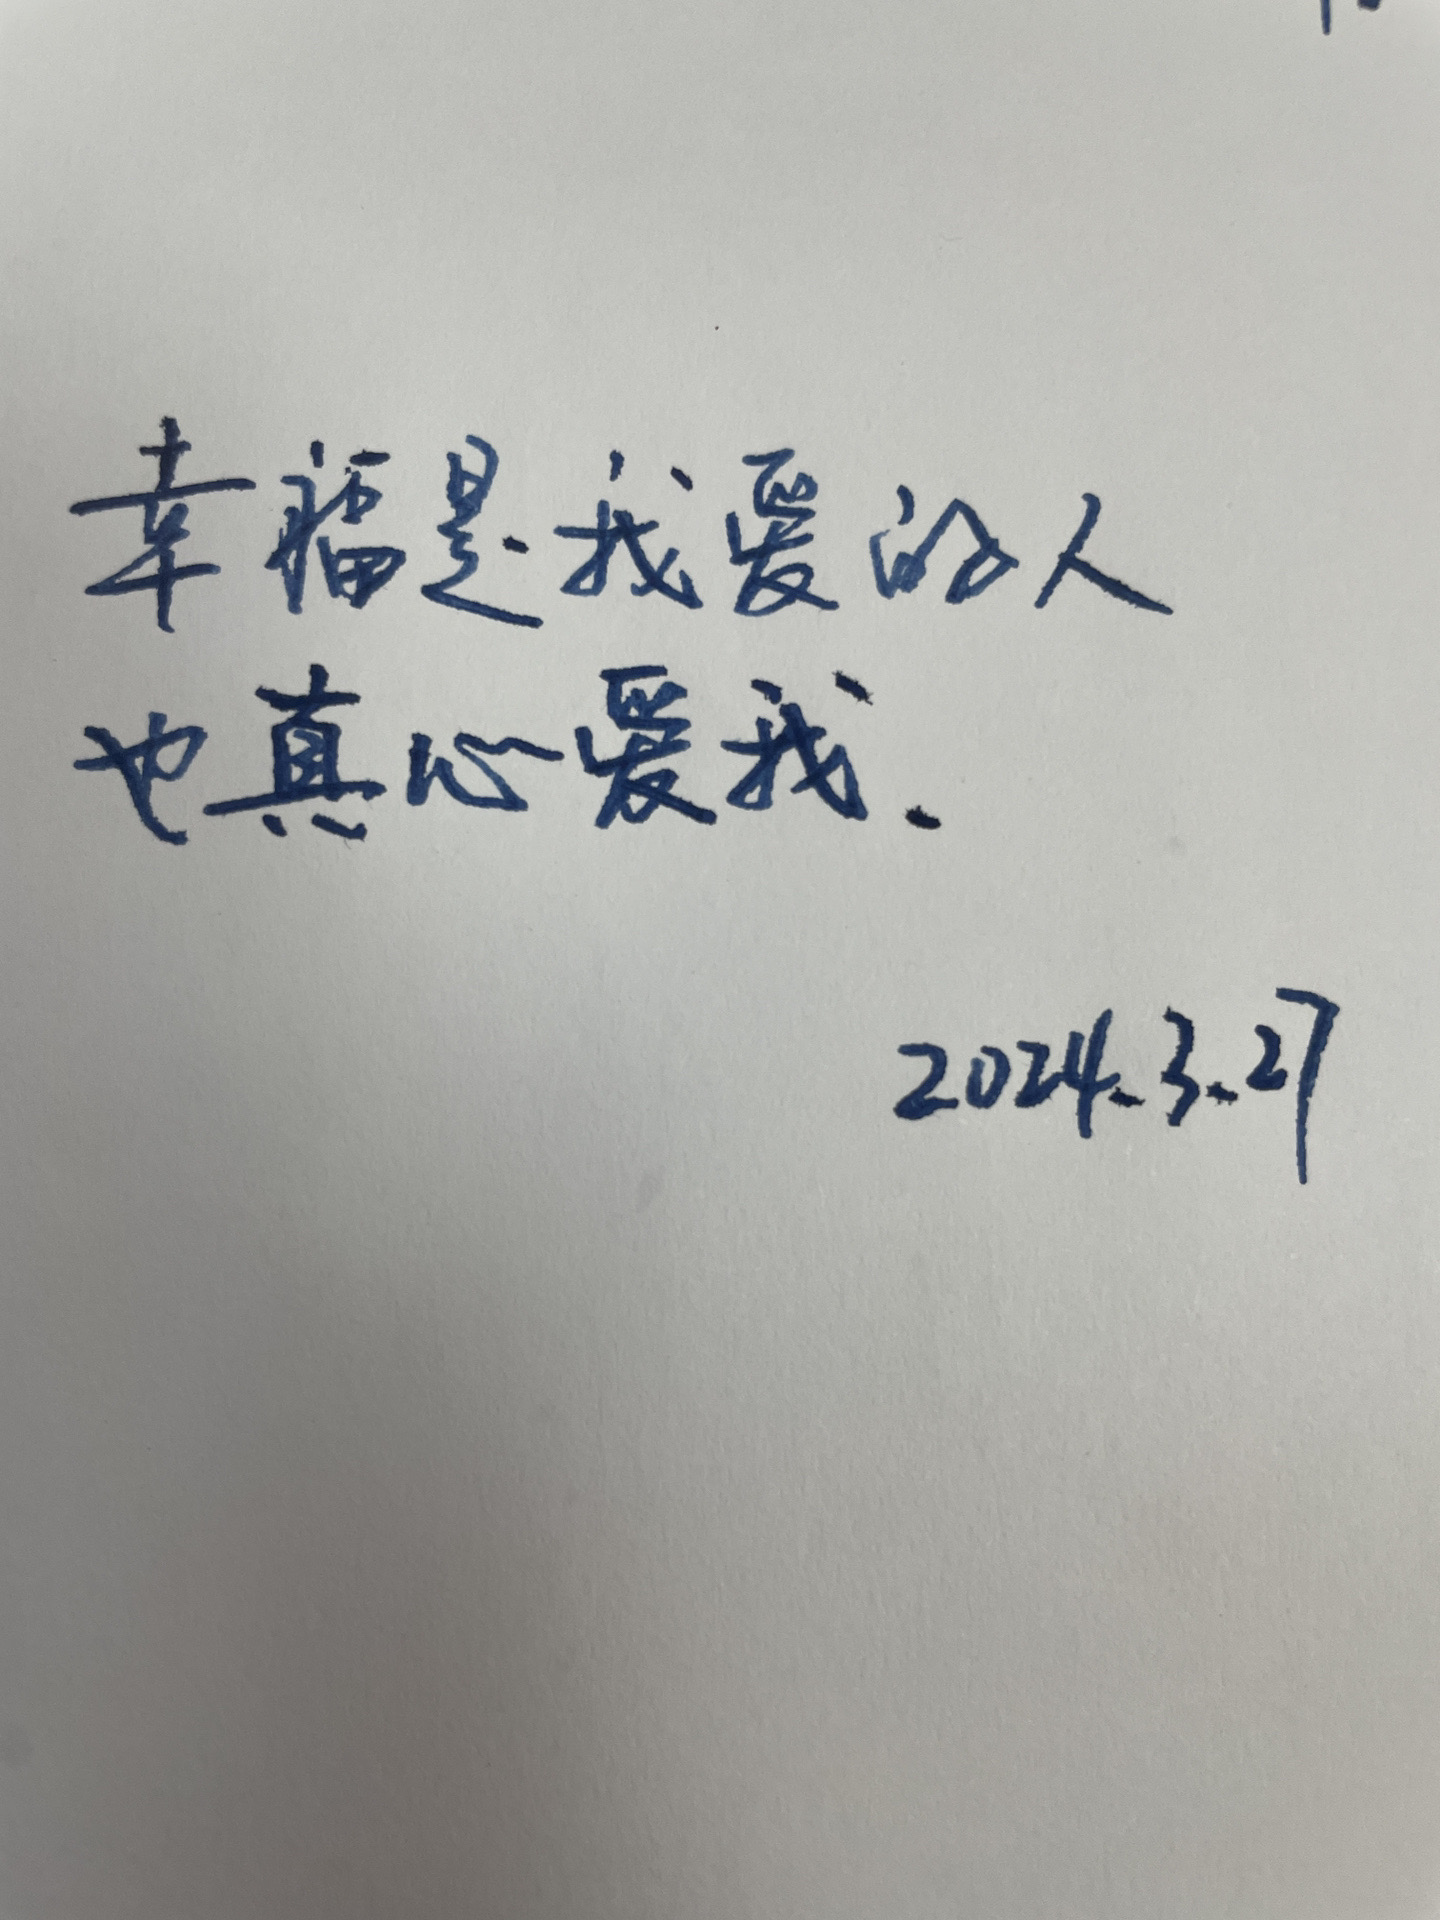 幸福是我爱的人
也真心爱我.
2024.3.27